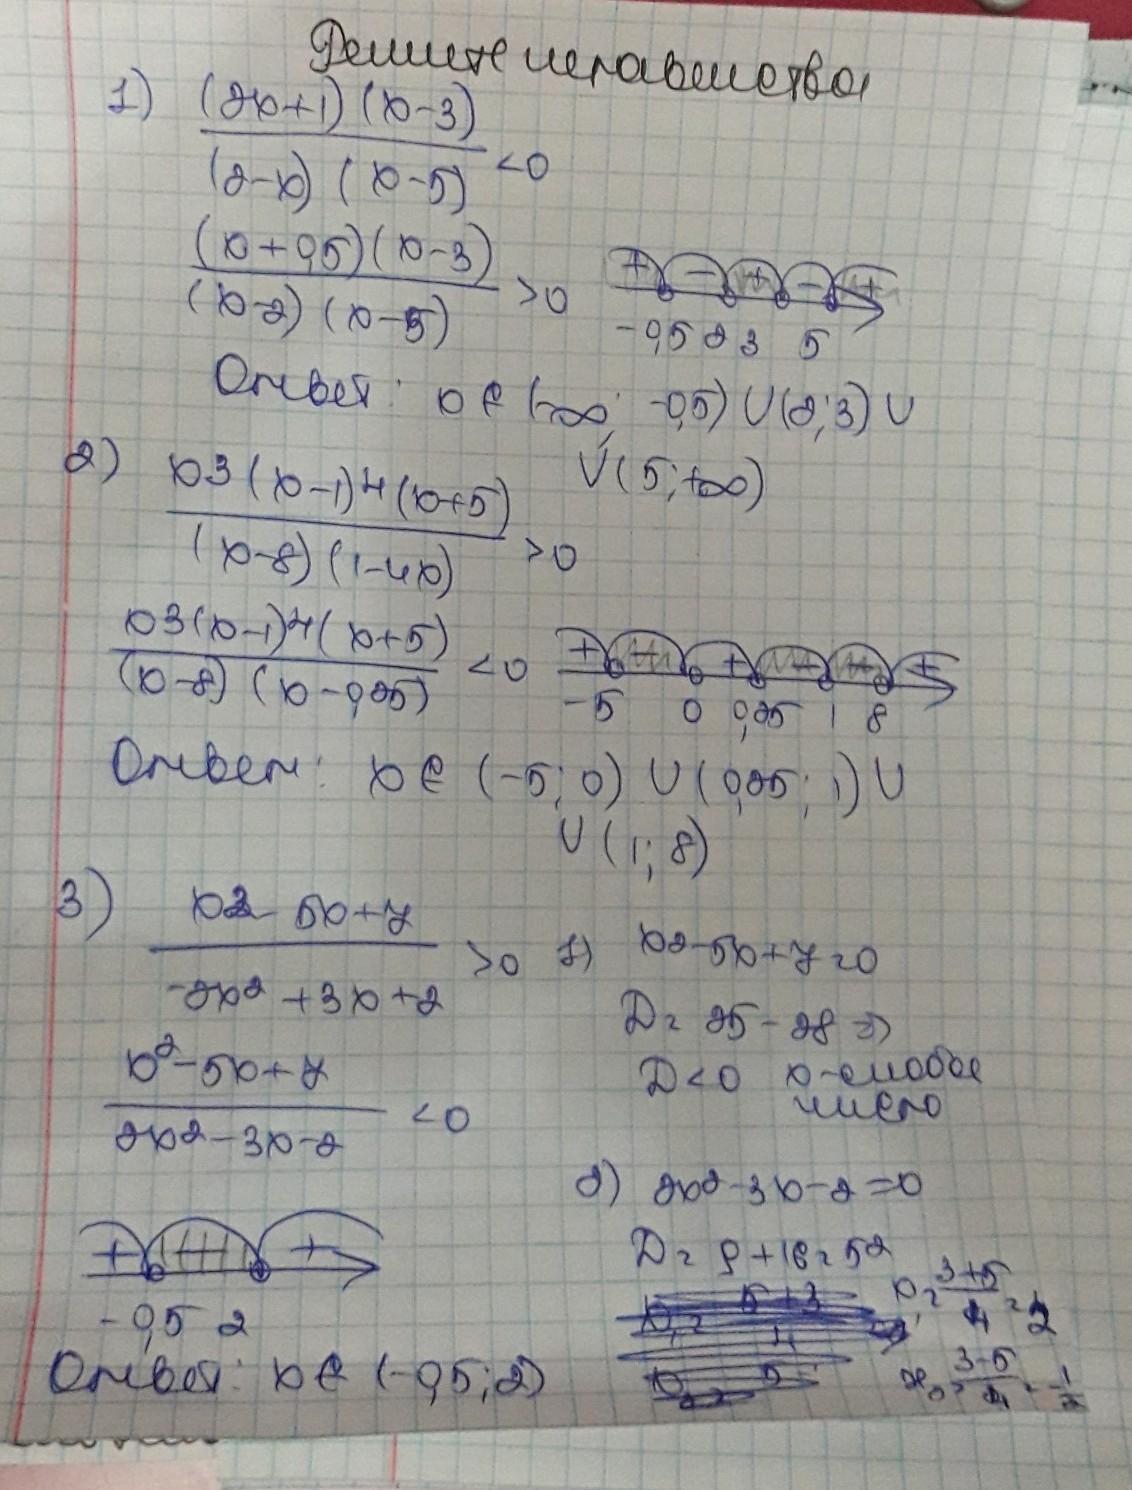 Решите неравенства
1) (2x+1)(x-3)
(2-x)(x-5) <0
(x+0,5)(x-3)
(x-2)(x-5) >0
+ - + - +
-0,5 2 3 5
Ответ: x ∈ (-∞; -0,5) ∪ (2; 3) ∪
∪ (5; +∞)
2) x3(x-1)4(x+5)
(x-8)(1-4x) >0
x3(x-1)4(x+5)
(x-8)(x-0,25) <0
+ - + - - +
-5 0 0,25 1 8
Ответ: x ∈ (-5; 0) ∪ (0,25; 1) ∪
∪ (1; 8)
3) x2-5x+7
-2x2+3x+2 >0
x²-5x+7
2x2-3x-2 <0
+ - +
-0,5 2
Ответ: x ∈ (-0,5; 2)
1) x2-5x+7=0
D= 25-28 =>
D<0 x-любое
число
2) 2x2-3x-2=0
D= 9+16=52
x1= 3+5
4 = 2
x2= 3-5
4 = -1
2